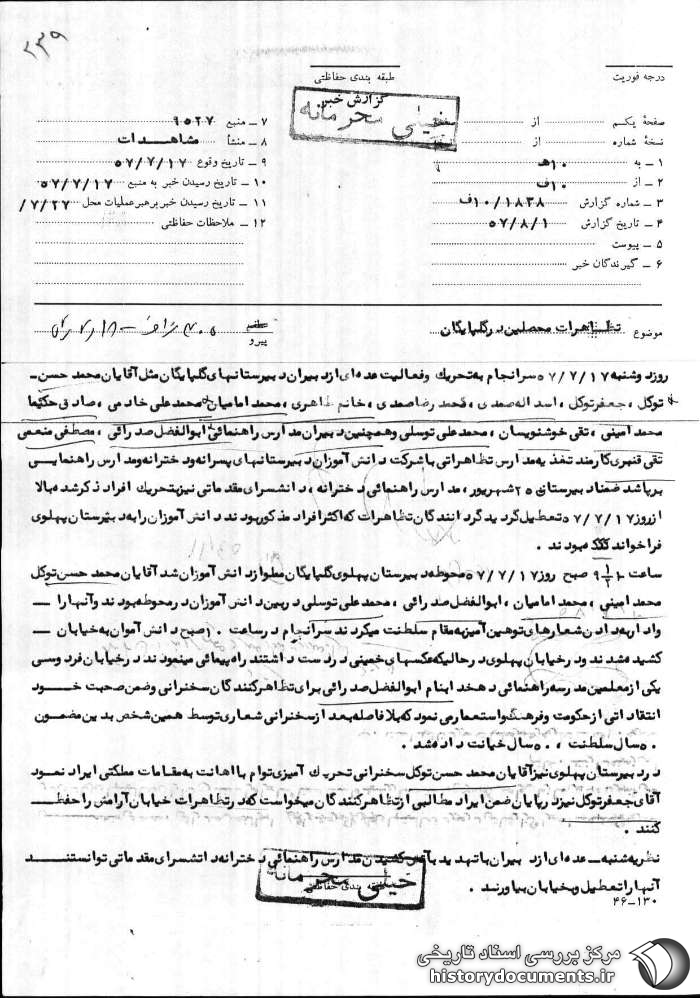 ۳۳۹
درجه فوریت
طبقه بندی حفاظتی
گزارش خبر
خیلی محرمانه
صفحهٔ یکم از صفحه
نسخهٔ شماره از نسخه
۱ ـ به ۱۰هـ
۲ ـ از ۱۰ف
۳ ـ شماره گزارش ۱۰/۱۸۳۸ف
۴ ـ تاریخ گزارش ۵۷/۸/۱
۵ ـ پیوست
۶ ـ گیرندگان خبر
۷ ـ منبع ۹۵۲۷
۸ ـ منشأ مشاهدات
۹ ـ تاریخ وقوع ۵۷/۷/۱۷
۱۰ ـ تاریخ رسیدن خبر به منبع ۵۷/۷/۱۷
۱۱ ـ تاریخ رسیدن خبر برهبر عملیات محل ۷/۲۷/
۱۲ ـ ملاحظات حفاظتی
موضوع تظاهرات محصلین در گلپایگان
پیرو
روز دوشنبه ۵۷/۷/۱۷ سرانجام به تحریک وفعالیت عده ای از دبیران دبیرستانهای گلپایگان مثل آقایان محمد حسن ـ
توکل ، جعفر توکل ، اسد اله صمدی ، محمد رضا صمدی ، خانم طاهری ، محمد امامیان ، محمد علی خادمی ، صادق حکیما
محمد امینی ، تقی خوشنویسان ، محمد علی توسلی وهمچنین دبیران مدارس راهنمائی ابوالفضل صدرائی ، مصطفی منعمی
تقی قنبری کارمند تغذیه مدارس تظاهراتی با شرکت دانش آموزان دبیرستانهای پسرانه ودخترانه ومدارس راهنمایی
برپا شد ضمنا دبیرستان ۲۵ شهریور ، مدارس راهنمائی دخترانه ، دانشسرای مقدماتی نیز بتحریک افراد ذکر شده بالا
از روز ۵۷/۷/۱۷ تعطیل گردید گردانندگان تظاهرات که اکثر افراد مذکور بودند دانش آموزان را به دبیرستان پهلوی
فراخوانده بودند .
ساعت ۹ ۱/۲ صبح روز ۵۷/۷/۱۷ محوطه دبیرستان پهلوی گلپایگان مملو از دانش آموزان شد آقایان محمد حسن توکل
محمد امینی ، محمد امامیان ، ابوالفضل صدرائی ، محمد علی توسلی در بین دانش آموزان در محوطه بودند وآنها را ـ
وادار به دادن شعارهای توهین آمیز به مقام سلطنت میکردند سرانجام در ساعت ۱۰ صبح دانش آموان به خیابان ـ
کشیده شدند ودر خیابان پهلوی در حالیکه عکسهای خمینی در دست داشتند راه پیمائی مینمودند در خیابان فردوسی
یکی از معلمین مدرسه راهنمائی دهخدا بنام ابوالفضل صدرائی برای تظاهر کنندگان سخنرانی وضمن صحبت خود
انتقاداتی از حکومت وفرهنگ استعماری نمود که بلافاصله بعد از سخنرانی شعاری توسط همین شخص بدین مضمون
۵۰ سال سلطنت ، ۵۰ سال خیانت داده شد .
در دبیرستان پهلوی نیز آقایان محمد حسن توکل سخنرانی تحریک آمیزی توام با اهانت به مقامات مملکتی ایراد نمود
آقای جعفر توکل نیز در پایان ضمن ایراد مطالبی از تظاهر کنندگان میخواست که در تظاهرات خیابان آرامش را حفظ
کنند .
نظریه شنبه ـ عده ای از دبیران با تهدید بآتش کشیدن مدارس راهنمائی دخترانه دانشسرای مقدماتی توانستند
آنها را تعطیل وبخیابان بیاورند .
۱۳۰-۴۶
طبقه بندی حفاظتی
خیلی محرمانه
مرکز بررسی اسناد تاریخی
historydocuments.ir